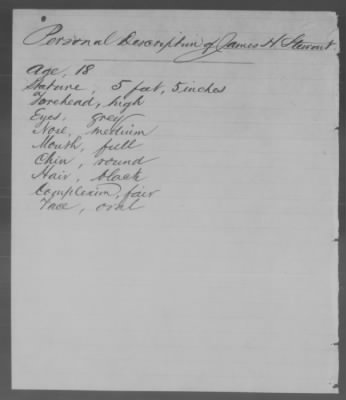 Personal Description of James H. Stewart
Age, 18
Stature, 5 feet, 5 inches
Forehead, high
Eyes, grey
Nose, medium
Mouth, full
Chin, round
Hair, black
Complexion, fair
Face, oval